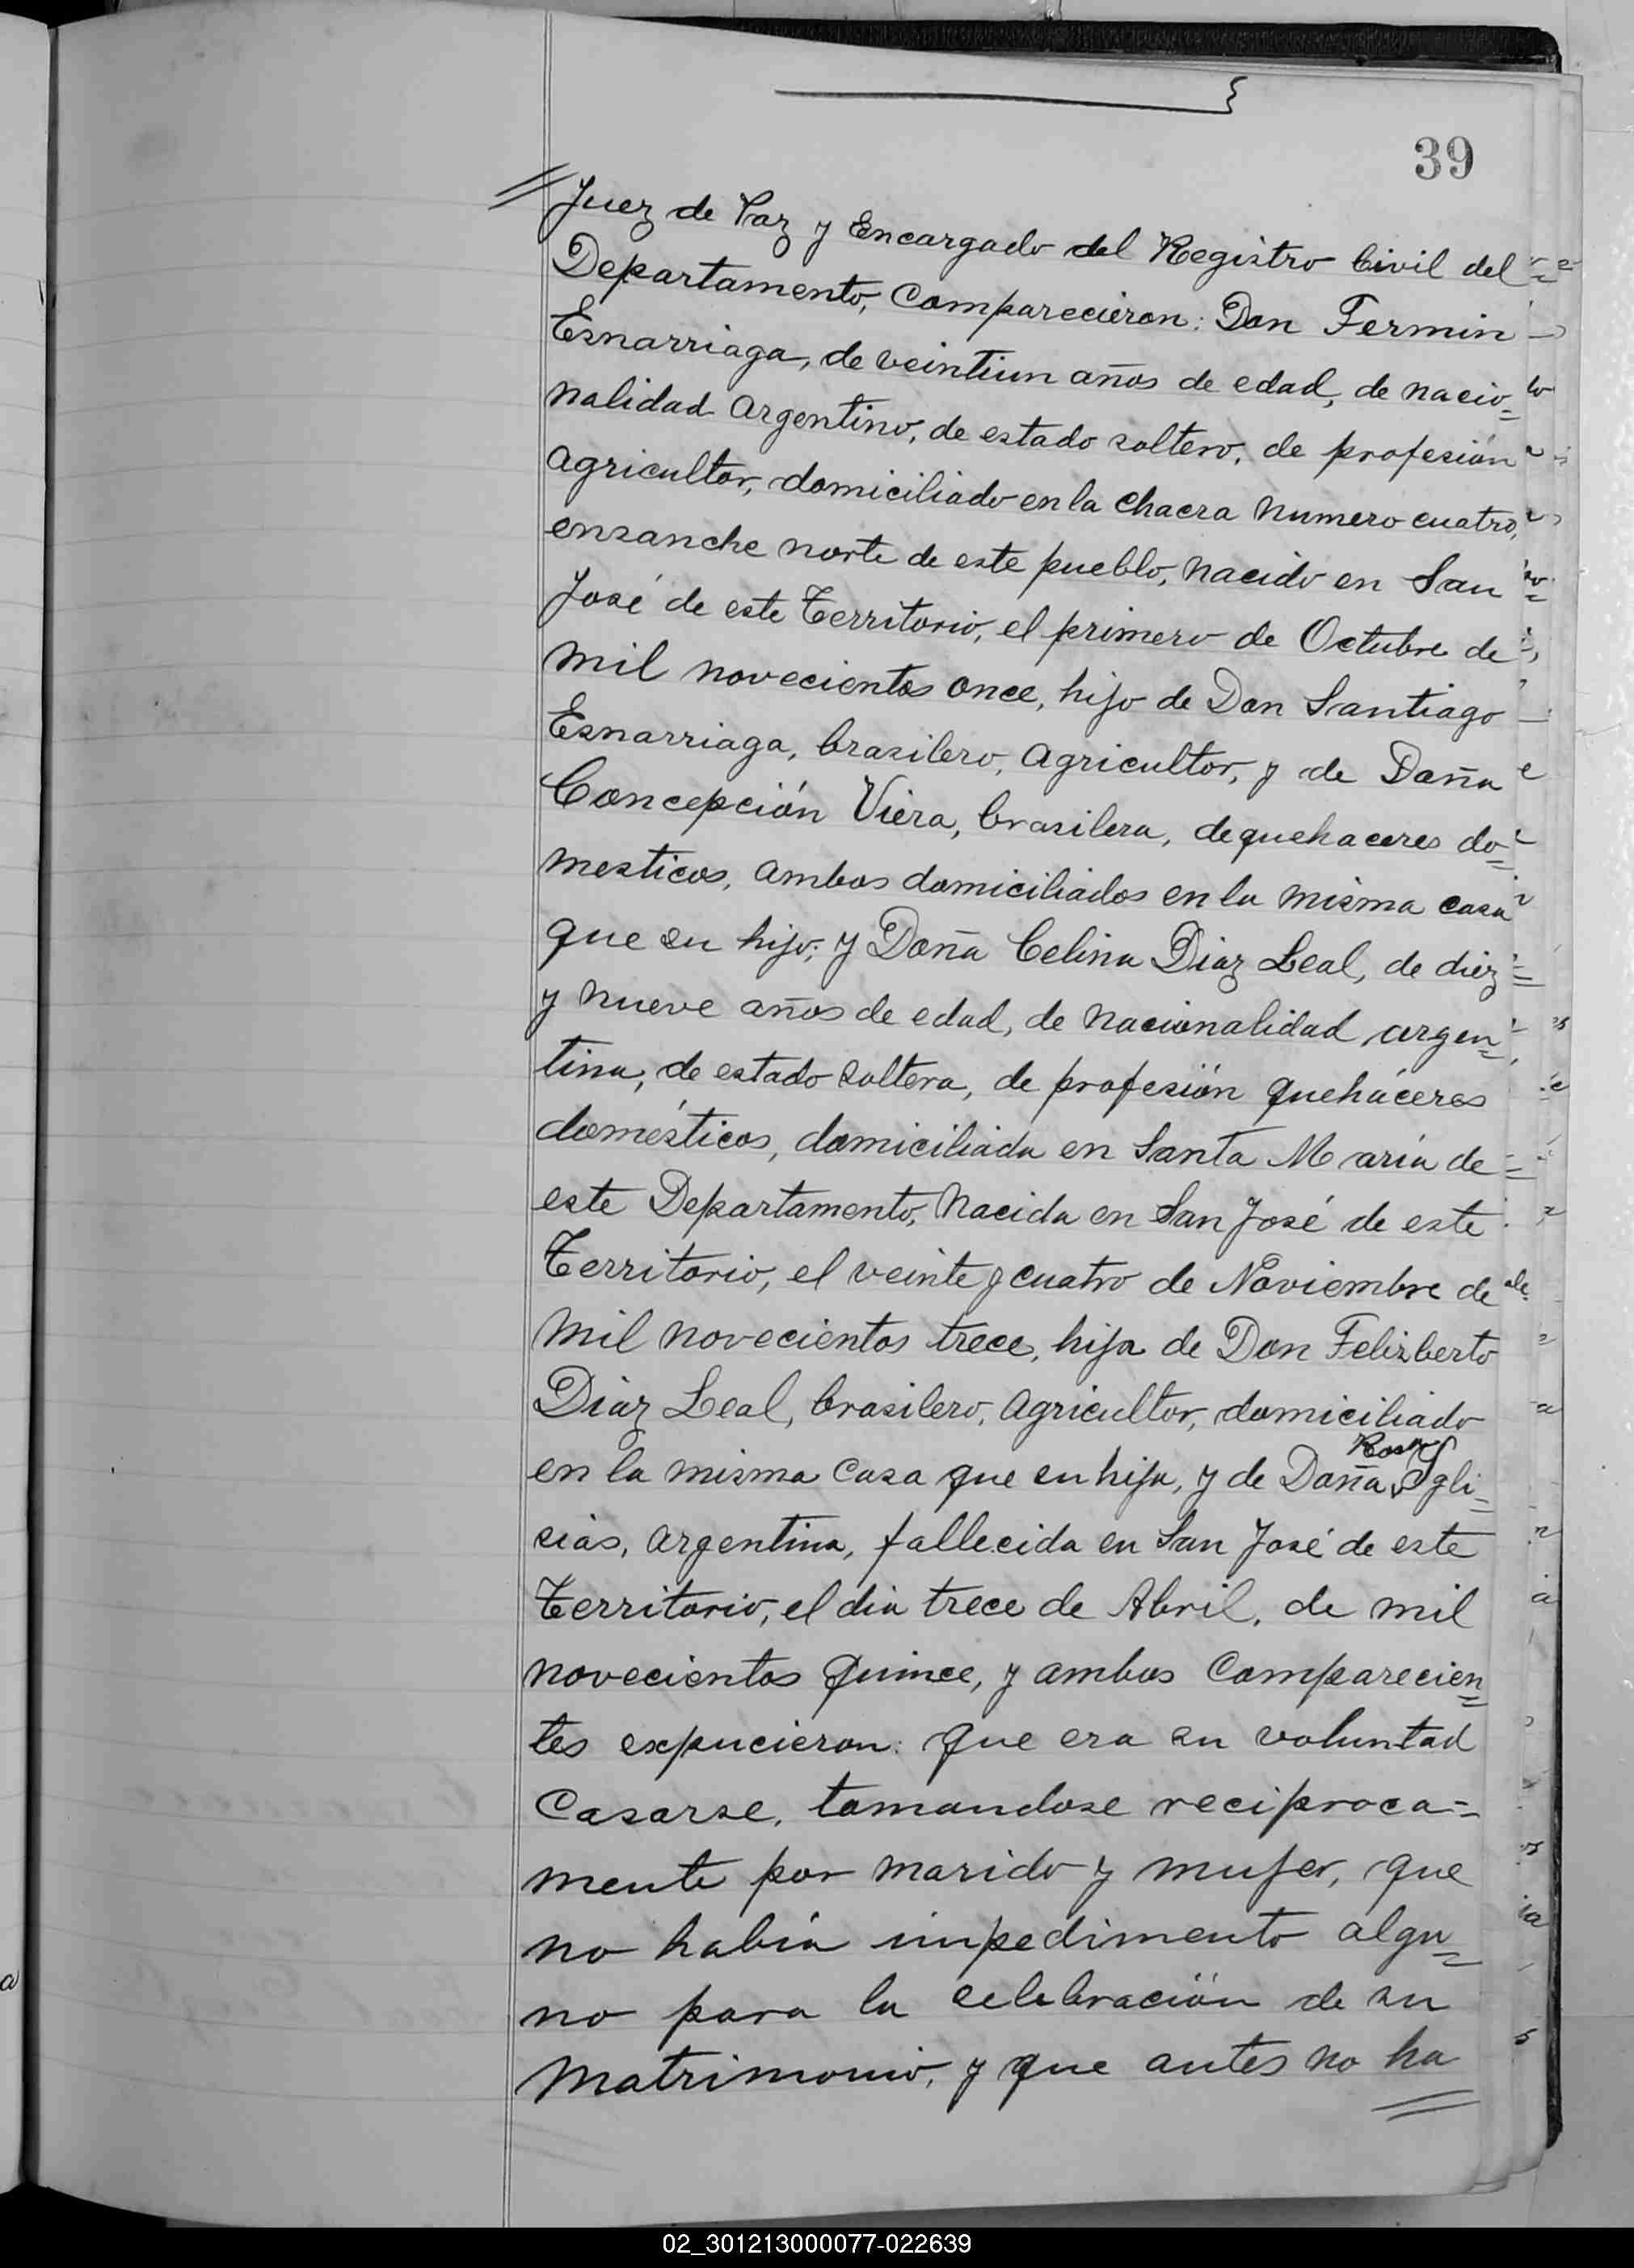 39
Juez de Paz y Encargado del Registro Civil del
Departamento, Comparecieron: Don Fermin
Esnarriaga, de veintiun años de edad, de nacio=
nalidad Argentino, de estado soltero, de profesión
Agricultor, domiciliado en la Chacra Numero cuatro,
ensanche norte de este pueblo, nacido en San
José de este Territorio, el primero de Octubre de
mil novecientos once, hijo de Don Santiago
Esnarriaga, brasilero, Agricultor, y de Doña
Concepción Viera, brasilera, de quehaceres do=
mesticos, ambos domiciliados en la misma casa
que su hijo; y Doña Celina Diaz Leal, de diez
y nueve años de edad, de nacionalidad argen=
tina, de estado soltera, de profesión quehaceres
domésticos, domiciliada en Santa María de
este Departamento, Nacida en San José de este
Territorio, el veinte y cuatro de Noviembre de
mil novecientos trece, hija de Don Felizberto
Diaz Leal, brasilero, Agricultor, domiciliado
en la misma casa que su hija, y de Doña Rosa Ygli=
cias, argentina, fallecida en San José de este
Territorio, el dia trece de Abril, de mil
novecientos Quince, y ambos Comparecien=
tes expucieron: que era su voluntad
Casarse, tomandose reciproca=
mente por marido y mujer, que
no había impedimento algu=
no para la celebración de su
Matrimonio, y que antes no ha
02_301213000077-022639